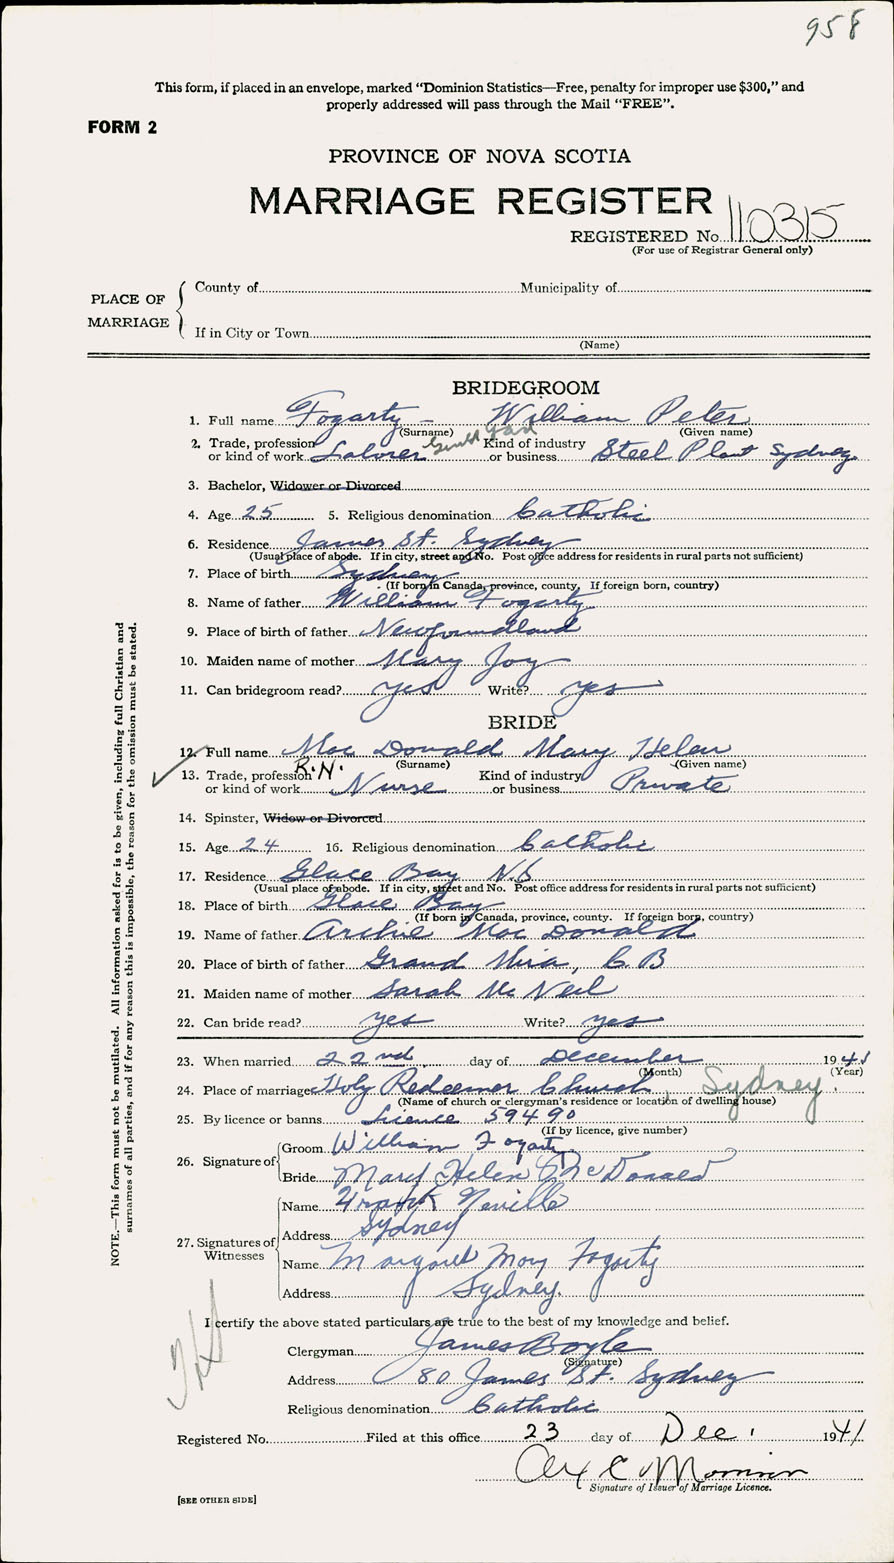 958
This form, if placed in an envelope, marked "Dominion Statistics—Free, penalty for improper use $300," and
properly addressed will pass through the Mail "FREE".
FORM 2
PROVINCE OF NOVA SCOTIA
MARRIAGE REGISTER
REGISTERED No. 110315
(For use of Registrar General only)
PLACE OF MARRIAGE
County of Municipality of
If in City or Town
(Name)
BRIDEGROOM
1. Full name Fogarty - William Peter
(Surname) (Given name)
2. Trade, profession or kind of work Laborer Kind of industry or business Steel Plant Sydney
3. Bachelor, Widower or Divorced
4. Age 25 5. Religious denomination Catholic
6. Residence James St. Sydney
(Usual place of abode. If in city, street and No. Post office address for residents in rural parts not sufficient)
7. Place of birth Sydney
(If born in Canada, province, county. If foreign born, country)
8. Name of father William Fogarty
9. Place of birth of father Newfoundland
10. Maiden name of mother Mary Joy
11. Can bridegroom read? yes Write? yes
BRIDE
12. Full name Mac Donald Mary Helen
(Surname) (Given name)
13. Trade, profession or kind of work R.N. Nurse Kind of industry or business Private
14. Spinster, Widow or Divorced
15. Age 24 16. Religious denomination Catholic
17. Residence Glace Bay N.S
(Usual place of abode. If in city, street and No. Post office address for residents in rural parts not sufficient)
18. Place of birth Glace Bay
(If born in Canada, province, county. If foreign born, country)
19. Name of father Archie Mac Donald
20. Place of birth of father Grand Mira, C.B
21. Maiden name of mother Sarah Mc Neil
22. Can bride read? yes Write? yes
23. When married 22nd day of December 1941
(Month) (Year)
24. Place of marriage Holy Redeemer Church, Sydney.
(Name of church or clergyman's residence or location of dwelling house)
25. By licence or banns Licence 59490
(If by licence, give number)
26. Signature of
Groom William Fogarty
Bride Mary Helen McDonald
27. Signatures of Witnesses
Name Frank Neville
Address Sydney
Name Margaret Mary Fogarty
Address Sydney.
I certify the above stated particulars are true to the best of my knowledge and belief.
Clergyman James Boyle
(Signature)
Address 80 James St. Sydney
Religious denomination Catholic
Registered No. Filed at this office 23 day of Dec. 1941
Alex C Morrison
Signature of Issuer of Marriage Licence.
[SEE OTHER SIDE]
NOTE.—This form must not be mutilated. All information asked for is to be given, including full Christian and
surnames of all parties, and if for any reason this is impossible, the reason for the omission must be stated.